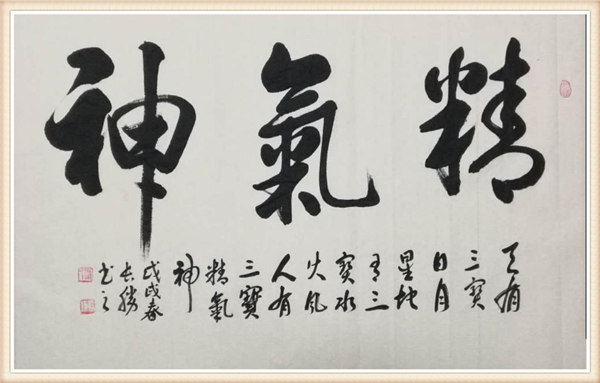 精氣神
天有
三寳
日月
星地
有三
寳水
火风
人有
三寶
精氣
神
戊戌春
长勝
书之